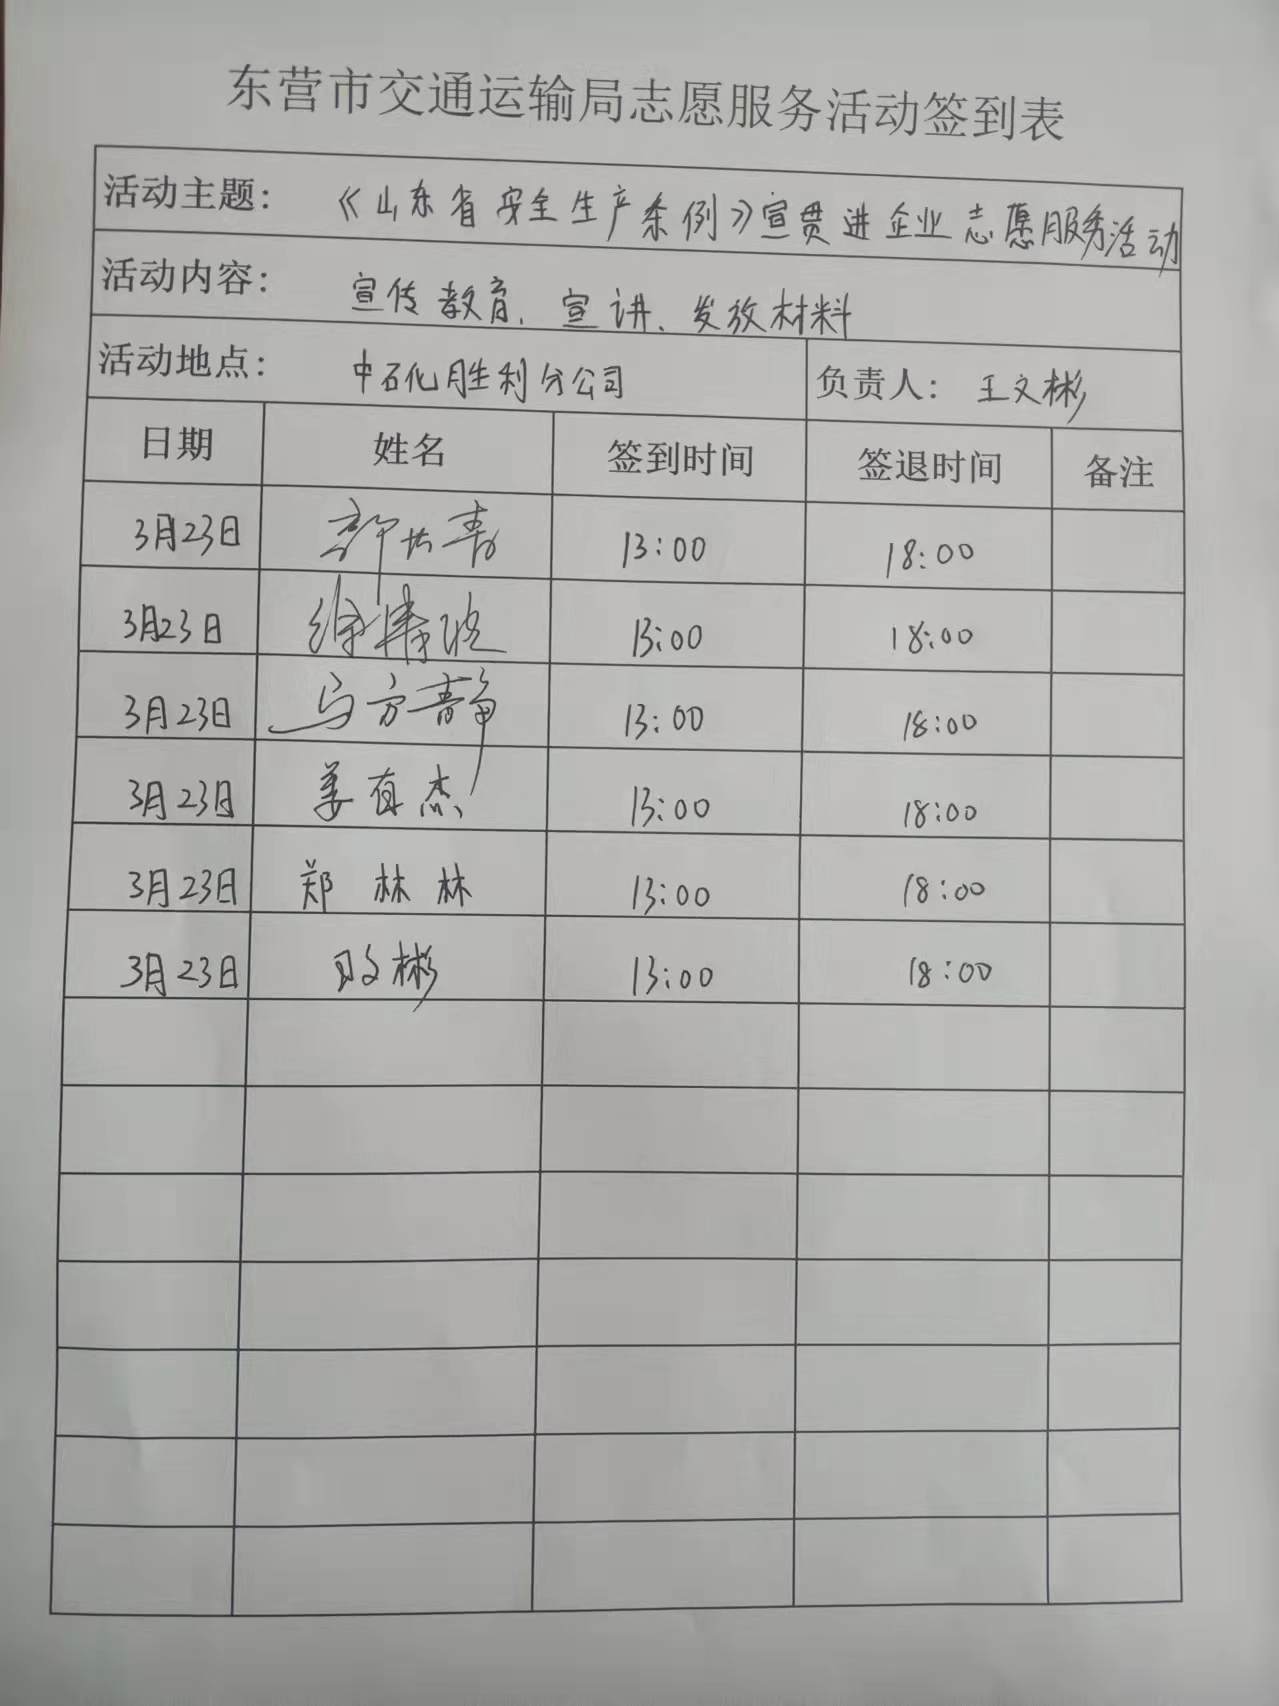 东营市交通运输局志愿服务活动签到表
活动主题： 《山东省安全生产条例》宣贯进企业志愿服务活动
活动内容： 宣传教育、宣讲、发放材料
活动地点： 中石化胜利分公司 负责人： 王文彬
日期 姓名 签到时间 签退时间 备注
3月23日 13:00 18:00
3月23日 13:00 18:00
3月23日 马方静 13:00 18:00
3月23日 姜有杰 13:00 18:00
3月23日 郑林林 13:00 18:00
3月23日 彬 13:00 18:00